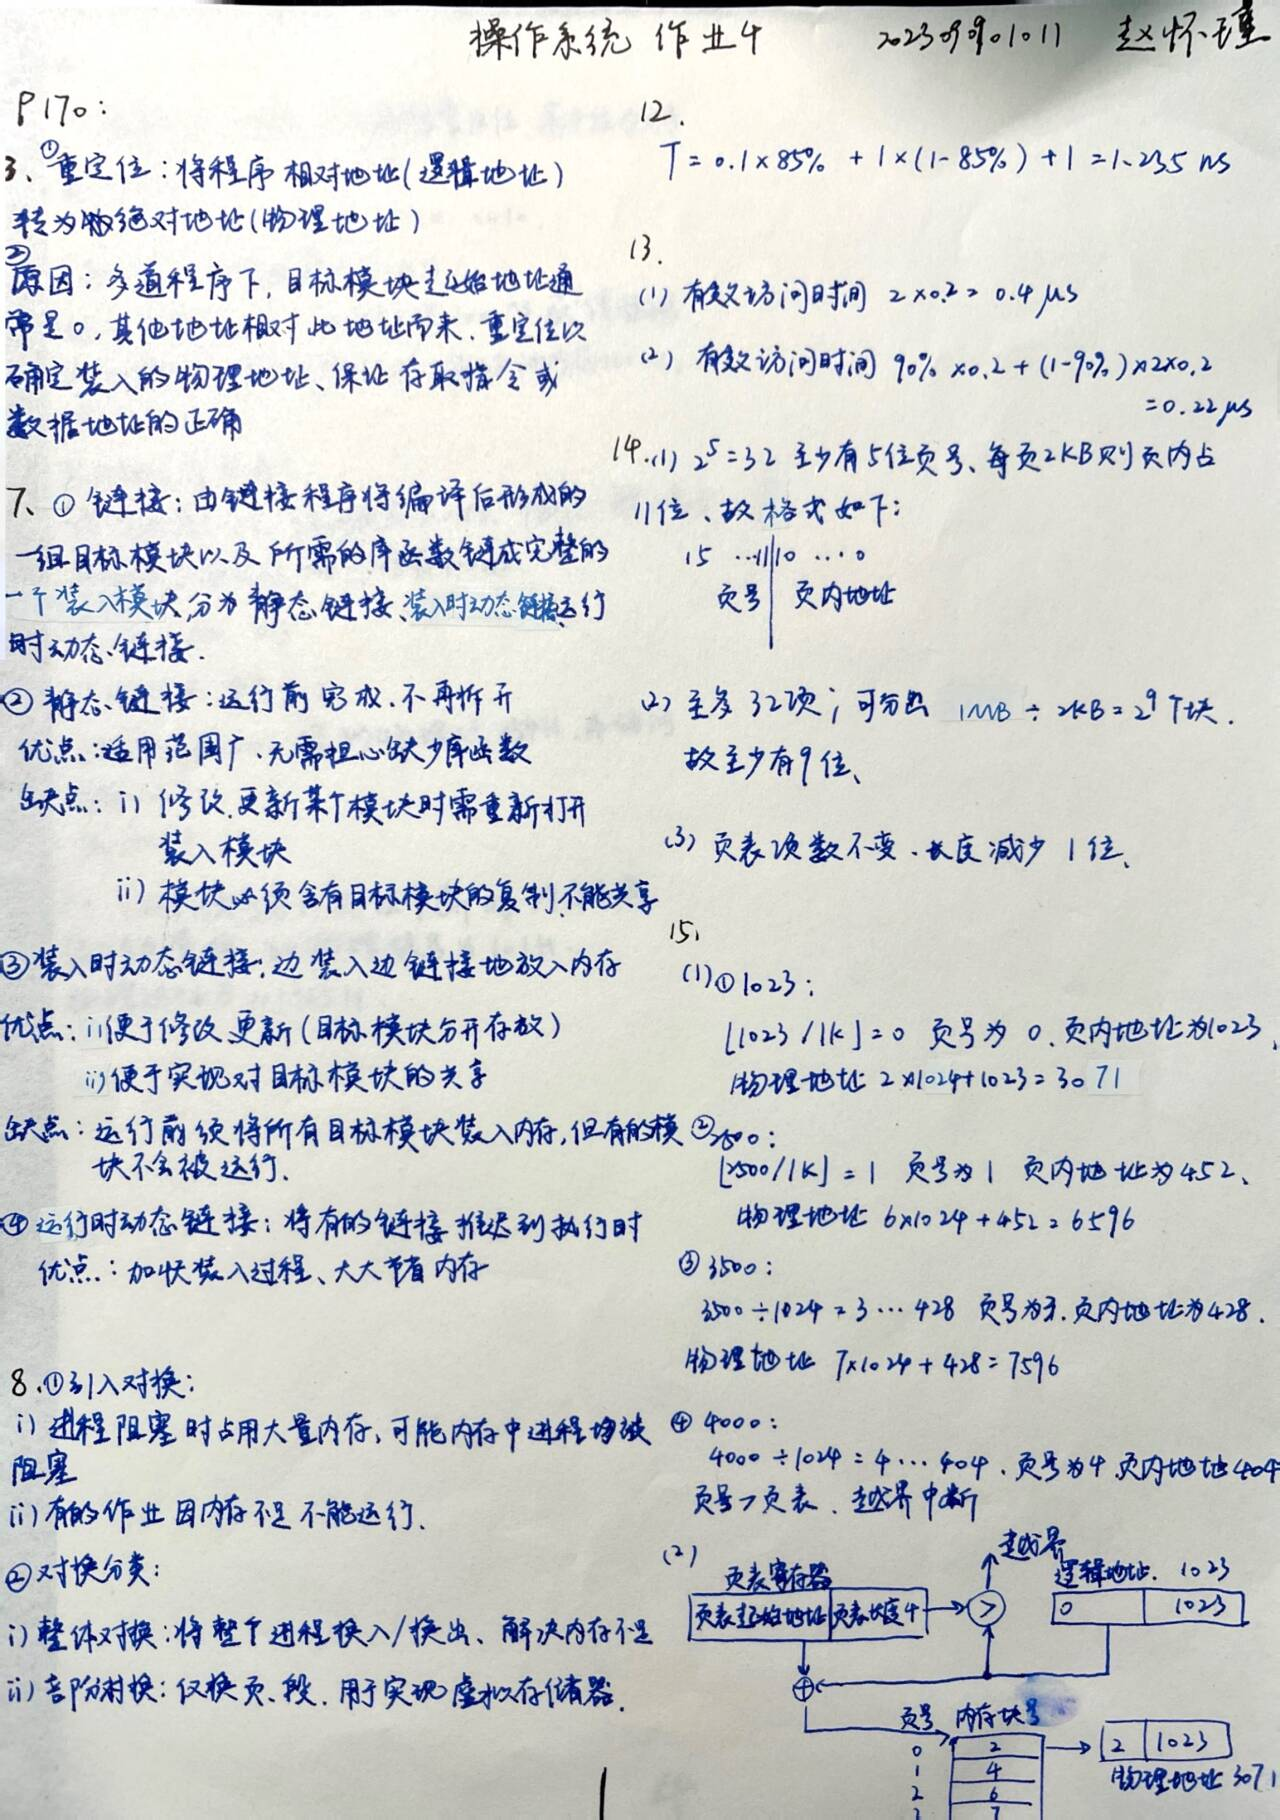 操作系统 作业4 202309901011 赵怀瑾
P170:
3、①重定位：将程序相对地址(逻辑地址)
转为绝对地址(物理地址)
②
原因：多道程序下，目标模块起始地址通
常是0，其他地址相对此地址而来．重定位以
确定装入的物理地址、保证存取指令或
数据地址的正确
7、①链接：由链接程序将编译后形成的
一组目标模块以及所需的库函数链成完整的
一个装入模块,分为静态链接、装入时动态链接、运行
时动态链接．
②静态链接：运行前完成．不再拆开
优点：适用范围广、无需担心缺少库函数
缺点：i) 修改、更新某个模块时需重新打开
装入模块
ii) 模块必须含有目标模块的复制,不能共享
③装入时动态链接：边装入边链接地放入内存
优点：i)便于修改、更新(目标模块分开存放)
ii)便于实现对目标模块的共享
缺点：运行前须将所有目标模块装入内存，但有的模
块不会被运行．
④运行时动态链接：将有的链接推迟到执行时
优点：加快装入过程、大大节省内存
8、①引入对换：
i) 进程阻塞时占用大量内存，可能内存中进程均被
阻塞
ii) 有的作业因内存不足不能运行．
②对换分类：
i) 整体对换：将整个进程换入/换出、解决内存不足
ii) 部分对换：仅换页、段．用于实现虚拟存储器．
12.
T = 0.1×85% + 1×(1-85%) +1 =1.235 ns
13.
(1) 有效访问时间 2×0.2 = 0.4 μs
(2) 有效访问时间 90% ×0.2 + (1-90%)×2×0.2
=0.22μs
14.(1) 2⁵=32 至少有5位页号、每页2KB则页内占
11位、故格式如下：
15 …11 10 … 0
页号 页内地址
(2) 至多32项；可分出 1MB ÷ 2KB = 2⁹个块．
故至少有9位、
(3) 页表项数不变．长度减少1位、
15、
(1)①1023：
[1023/1K]=0 页号为0．页内地址为1023、
物理地址 2×1024+1023=3071
②2500：
[2500/1K] = 1 页号为1 页内地址为452、
物理地址 6×1024+452=6596
③3500：
3500÷1024 = 3…428 页号为3．页内地址为428．
物理地址 7×1024+428=7596
④4000：
4000÷1024 = 4…404．页号为4 页内地址404
页号>页表．越界中断
(2) 越界
页表寄存器 逻辑地址．1023
页表起始地址 页表长度4 > 0 1023
+
页号 内存块号
0 2 2 1023
1 4 物理地址 3071
2 6
3 7